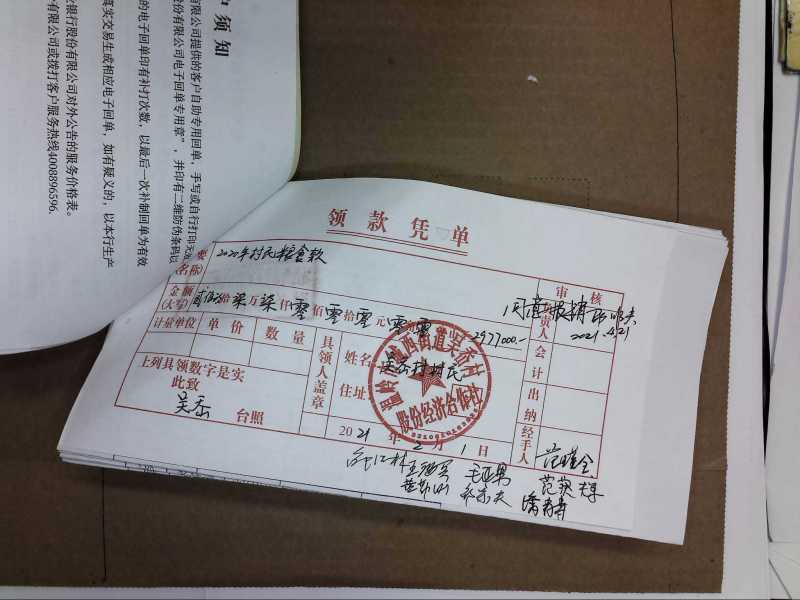 户须知
有限公司提供的客户自助专用回单,手写或自行打印无效
股份有限公司电子回单专用章”,并印有二维防伪条码以
的电子回单印有补打次数,以最后一次补制回单为有效
真实交易生成相应电子回单,如有疑义的,以本行生产
业银行股份有限公司对外公告的服务价格表。
有限公司或拨打客户服务热线4008896596.
领款凭单
要
(名称)
2020年村民粮食款
金额
(大写)
拾柒万柒仟零佰零拾零元零零
2977000.-
审核
同意报销
负责人
2021.4.21
计量单位 单价 数量
具领人盖章
姓名
住址
吴岙村村民
会计
出纳
经手人
上列具领数字是实
此致
吴岙 台照
2021年2月1日
城西街道吴岙村
股份经济合作社